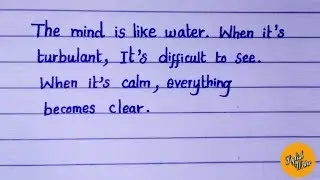 The mind is like water. When it's
turbulant, It's difficult to see.
When it's calm, everything
becomes clear.